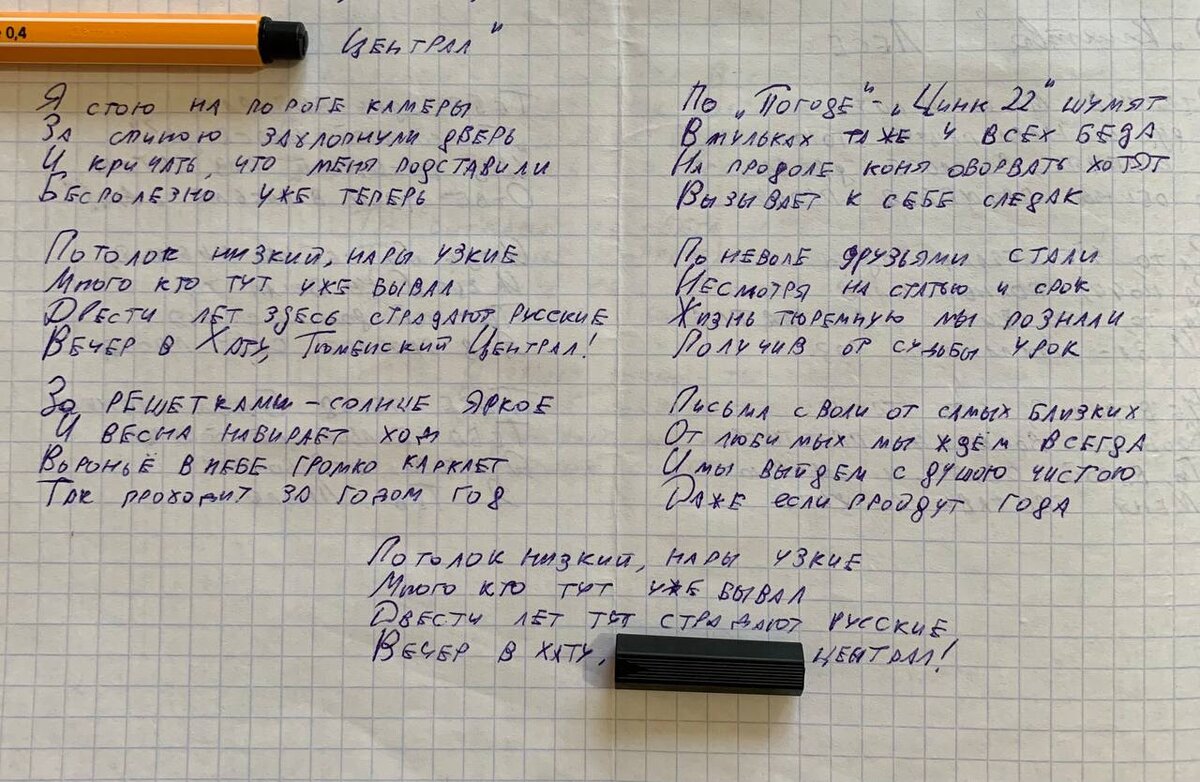 0,4
Централ"
Я стою на пороге камеры
За спиною захлопнули дверь
И кричать, что меня подставили
Бесполезно уже теперь
Потолок низкий, нары узкие
Много кто тут уже бывал
Двести лет здесь страдают русские
Вечер в Хату, Тюменский Централ!
За решетками – солнце яркое
И весна набирает ход
Воронье в небе громко каркает
Так проходит за годом год
По „Погоде" - „Цинк 22" шумят
В мульках та же у всех беда
На продоле коня оборвать хотят
Вызывает к себе следак
По неволе друзьями стали
Несмотря на статью и срок
Жизнь тюремную мы познали
Получив от судьбы урок
Письма с воли от самых близких
От любимых мы ждём всегда
И мы выйдем с душою чистою
Даже если пройдут года
Потолок низкий, нары узкие
Много кто тут уже бывал
Двести лет тут страдают русские
Вечер в хату, Централ!